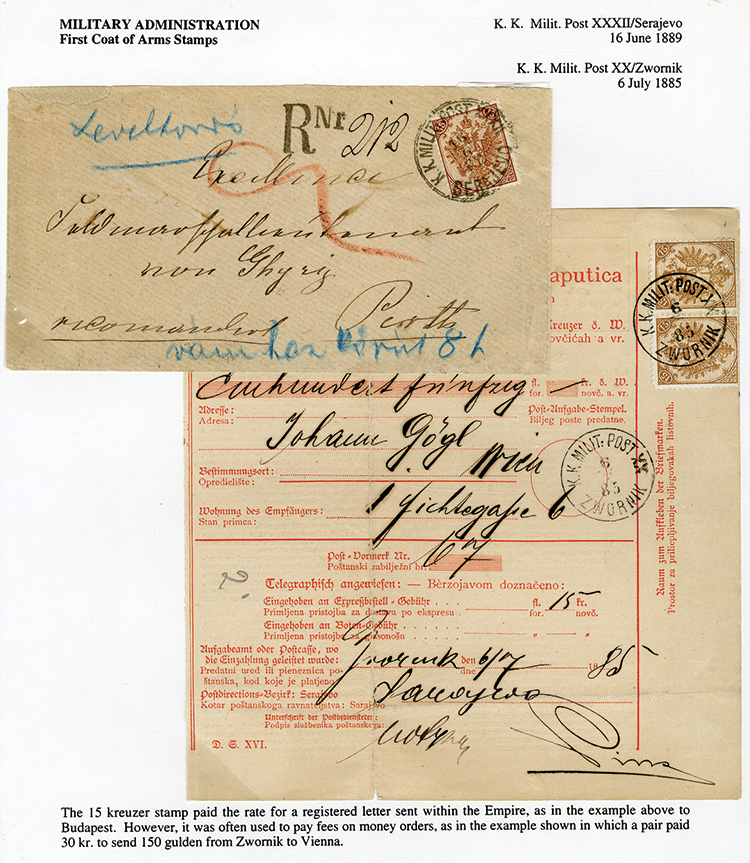 MILITARY ADMINISTRATION
First Coat of Arms Stamps
K. K. Milit. Post XXXII/Serajevo
16 June 1889
K. K. Milit. Post XX/Zwornik
6 July 1885
R Nr 212
15
K.K. MILIT. POST
Excellence
Feldmarschallieutenant
von Ghyczy
recomandert
aputica
Kreuzer d. W.
novčićah a vr.
15
K.K. MILIT. POST. XX
6
85
ZWORNIK
Einhundert fünfzig
fl. kr. d. W.
for. novč. a vr.
Adresse:
Adresa:
Post-Aufgabe-Stempel.
Biljeg poste predatne.
Johann Gögl
Wien
K.K. MILIT. POST. XX
6
85
ZWORNIK
Bestimmungsort:
Opredielište:
Wohnung des Empfängers:
Stan primca:
1 Fichtegasse 6
Raum zum Aufkleben der Briefmarken.
Prostor za priliepljivanje biljegovakah listovnih.
6/7
Post-Vormerk Nr.
Poštanski zabilježni br.
Telegraphisch angewiesen: — Bèrzojavom doznačeno:
Eingehoben an Expreßbestell-Gebühr fl. 15 kr.
Primljena pristojba za dostavu po ekspresu for. novč.
Eingehoben an Boten-Gebühr
Primljena pristojba za glasonošu " "
Aufgabeamt oder Postcasse, wo
die Einzahlung geleistet wurde:
Predatni ured ili pieneznica po-
štanska, kod koje je platjeno
Zwornik den 6/7 1885
dne
Postdirections-Bezirk: Serajewo
Kotar poštanskoga ravnateljstva: Sarajevo
Sarajewo
Unterschrift der Postbediensteten:
Podpis službenika poštanskoga:
D. S. XVI.
The 15 kreuzer stamp paid the rate for a registered letter sent within the Empire, as in the example above to
Budapest. However, it was often used to pay fees on money orders, as in the example shown in which a pair paid
30 kr. to send 150 gulden from Zwornik to Vienna.